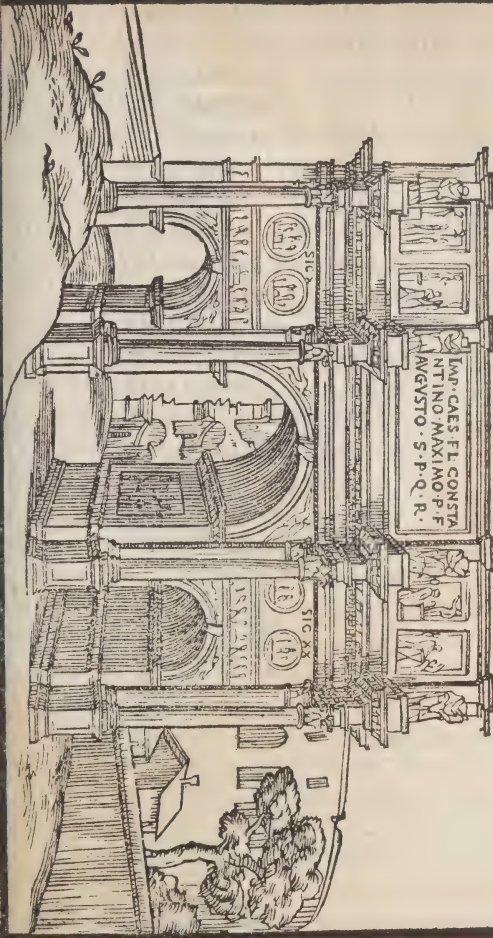 IMP·CAES·FL·CONSTA
NTINO·MAXIMO·P·F
AVGVSTO·S·P·Q·R·
SIC X
SIC XX